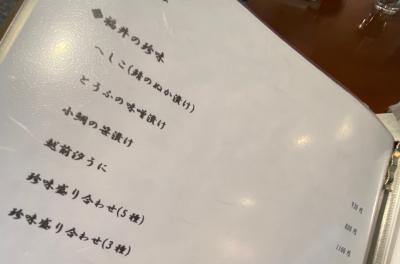 ◆福井の珍味
へしこ(鯖のぬか漬け)
とうふの味噌漬け
小鯛の笹漬け
越前汐うに
珍味盛り合わせ(5種)
珍味盛り合わせ(3種)
930円
880円
1100円